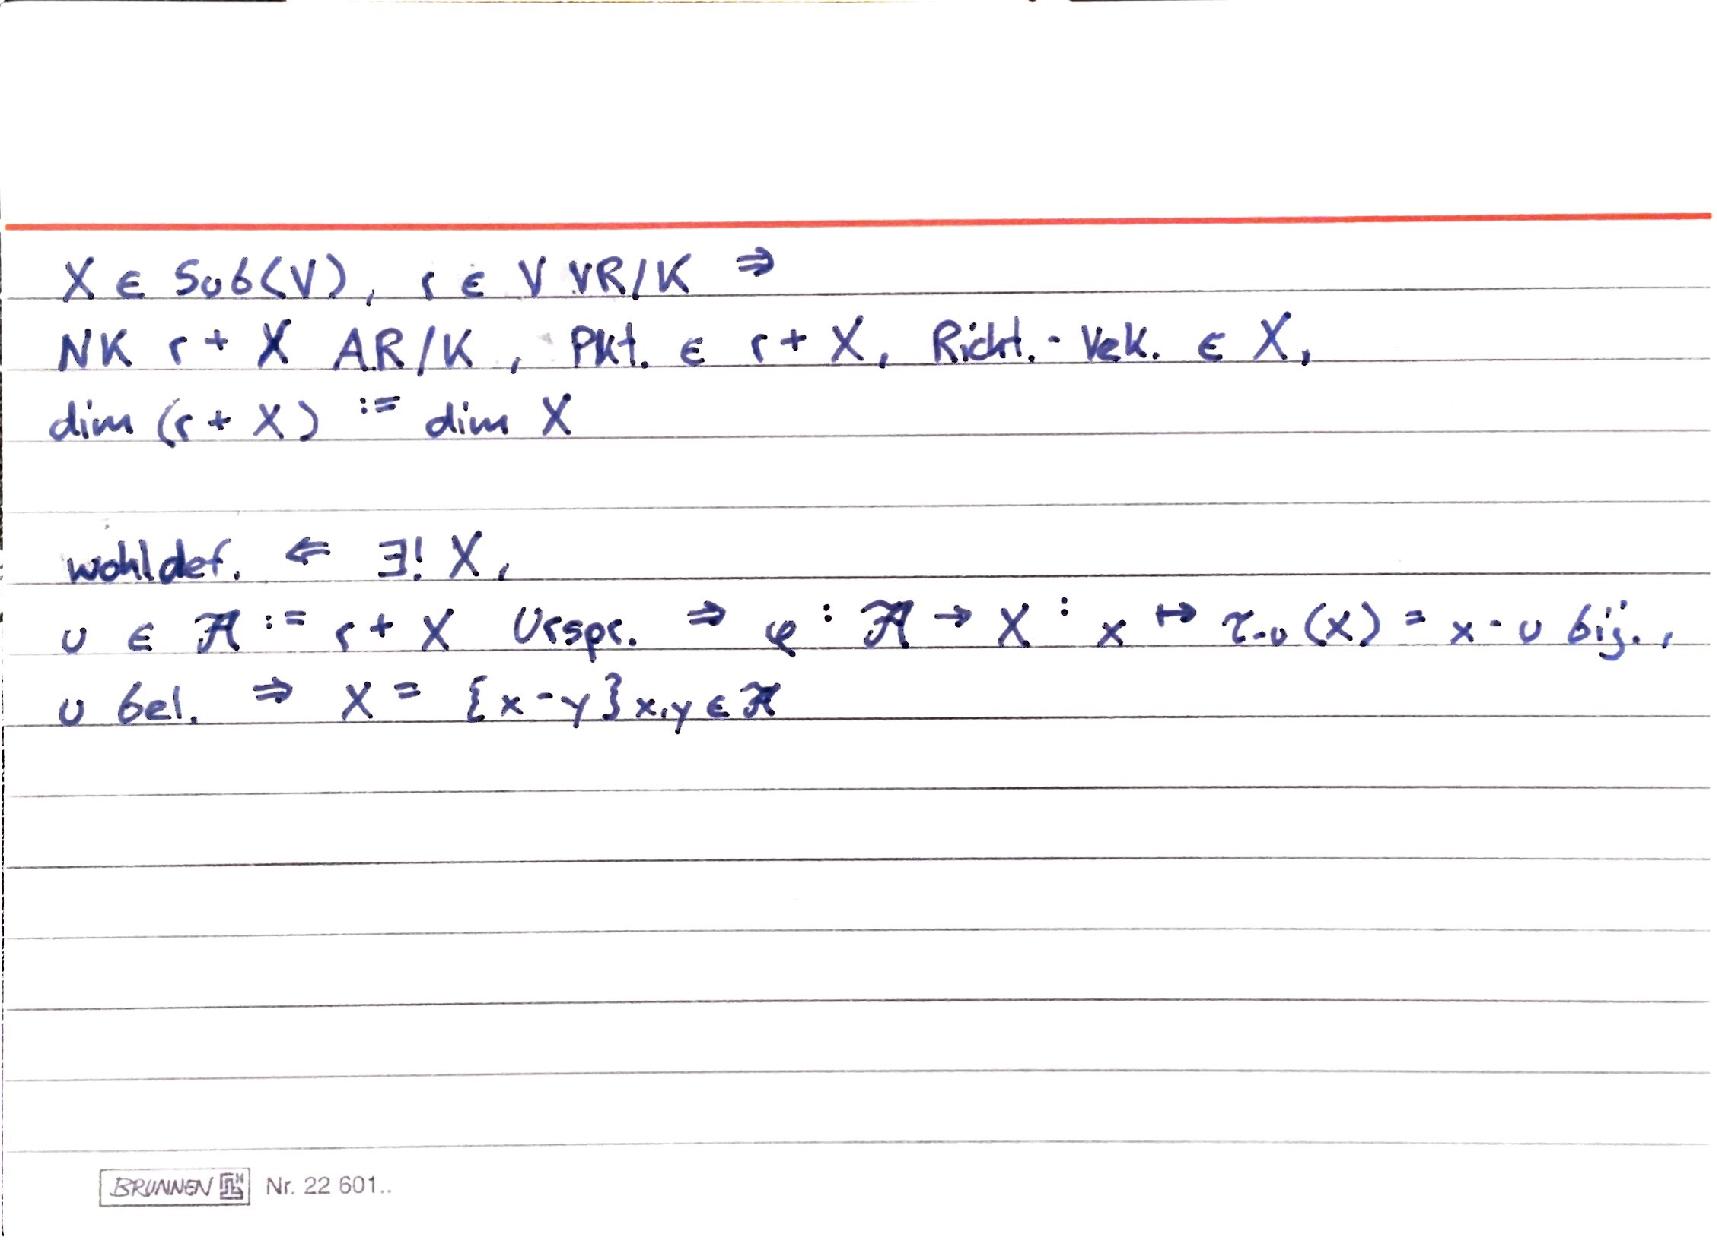 X ∈ Sub(V), r ∈ V VR/K ⇒
NK r + X AR/K, Pkt. ∈ r + X, Richt.-Vek. ∈ X,
dim (r + X) := dim X
wohldef. ⇐ ∃! X,
u ∈ 𝒜 := r + X Urspr. ⇒ φ : 𝒜 → X : x ↦ τ₋ᵤ(x) = x - u bij.,
u bel. ⇒ X = {x - y}x,y ∈ 𝒜
BRUNNEN Nr. 22 601..